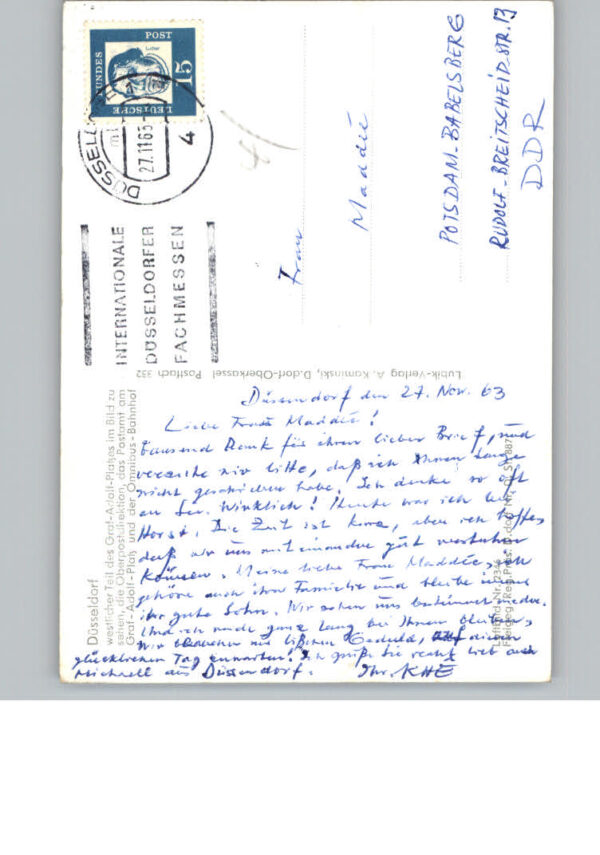 DEUTSCHE
BUNDESPOST
15
Luther
DÜSSELDORF
27.11.63
4
INTERNATIONALE
DÜSSELDORFER
FACHMESSEN
Frau
Maddie
POTSDAM-BABELSBERG
RUDOLF-BREITSCHEID.STR.
DDR
Lubik-Verlag A. Kaminski, D.dorf-Oberkassel Postfach 352
Düsseldorf
westlicher Teil des Graf-Adolf-Platzes im Bild zu
sehen, die Oberpostdirektion, das Postamt am
Graf-Adolf-Platz und der Omnibus-Bahnhof
Luftbild Nr.
Freigeg. Reg. Präs. D.dorf Nr.
Düssendorf den 27. Nov. 63
Liebe Frau Maddie!
tausend Dank für ihren lieben Brief, und
verzeihe mir bitte, daß ich Ihnen lange
nicht geschrieben habe. Ich denke so oft
an Sie. Wirklich! Heute war ich bei
Horst. Die Zeit ist kurz, aber ich hoffe,
daß wir uns miteinander gut verstehen
können. Meine liebe Frau Maddie, ich
gehöre auch ihre Familie und bleibe immer
ihr gute Sohn. Wir sehen uns bestimmt wieder.
Und ich noch ganz lang bei Ihnen bleiben,
Wir brauchen ein bißchen Geduld, diesen
glücklichen Tag erwarten! Ich grüße Sie recht lieb auch
Michaell aus Düssendorf. Ihr. KHE